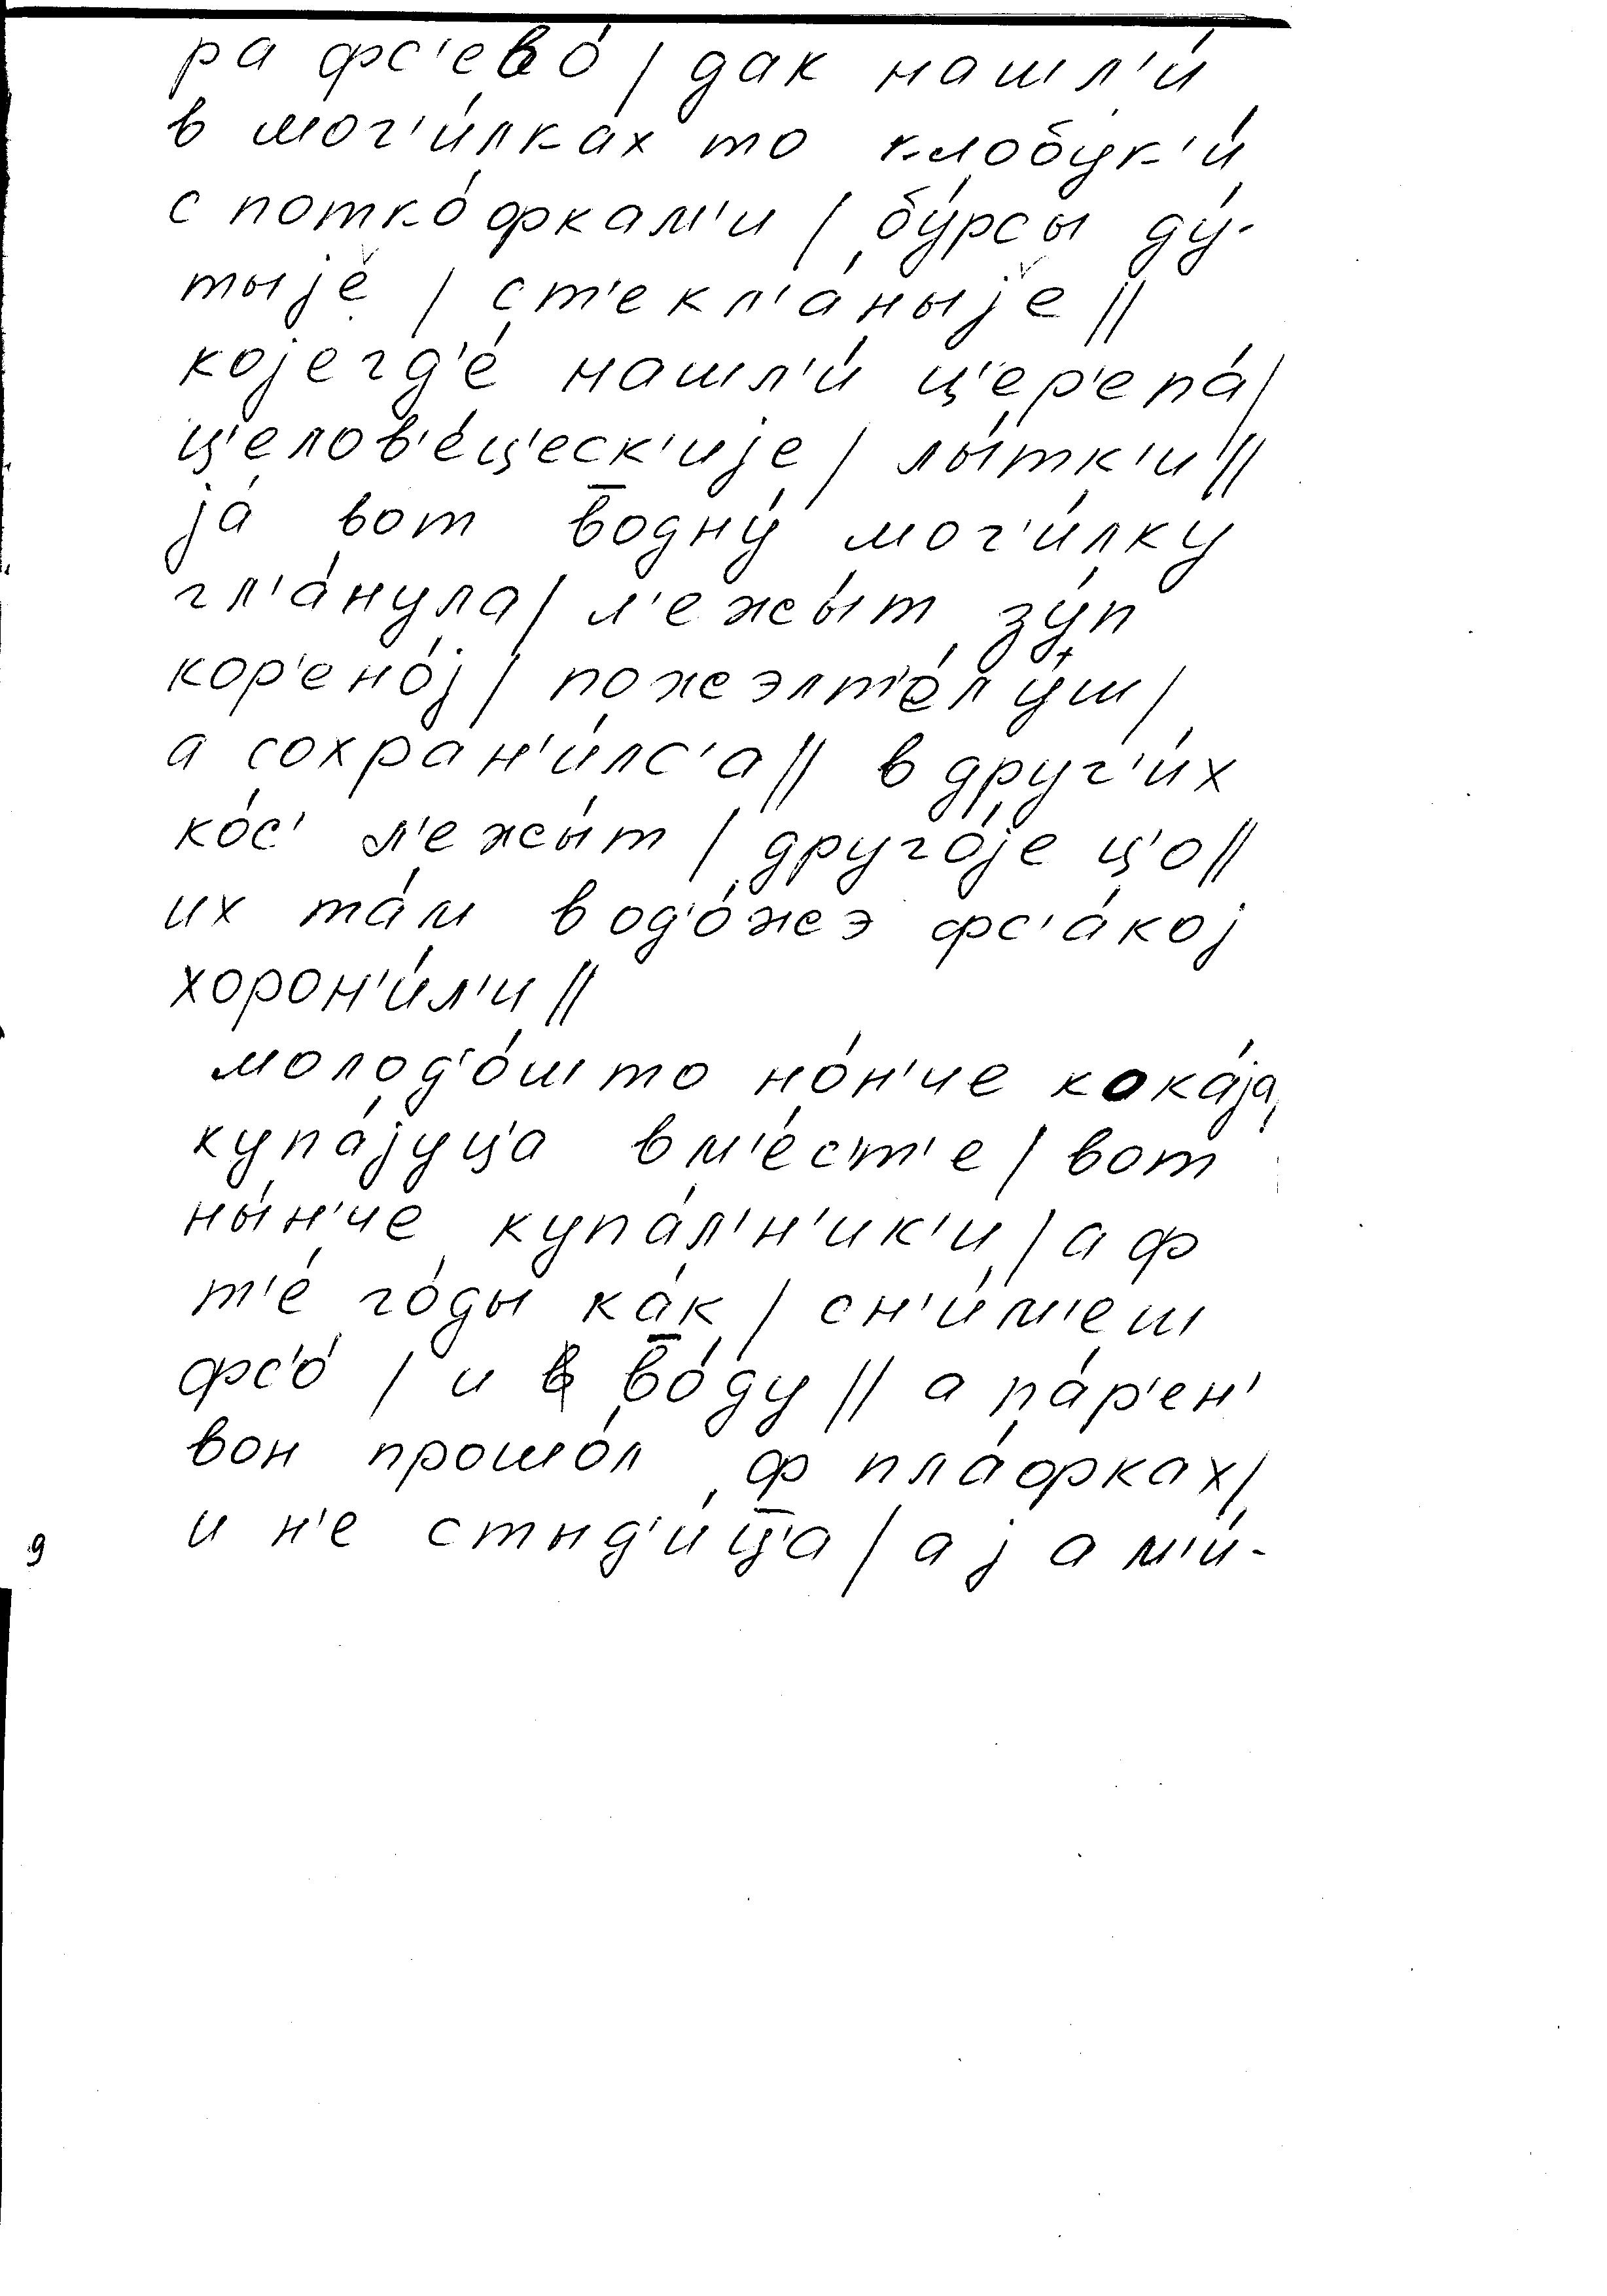 ра фс'ево́ / дак нашл'и́
в мог'и́лках то клобук'и́
с потко́фкам'и / бу́рсы ду́-
тыје / ст'екл'а́ныје //
којегд'е́ нашл'и́ ц'ер'епа́ /
ц'елов'е́ц'еск'ије / лы́тк'и //
ја́ вот в̅одну́ мог'и́лку
гл'а́нула / л'ежы́т зу́п
кор'ено́ј / пожэлт'е́л уш /
а сохран'и́лс'а // в друг'и́х
ко́с' л'ежы́т / друго́је ц'о //
их та́м в од'о́жэ фс'а́кој
хорон'и́л'и //
молод'о́што но́н'че кока́ја,
купа́јуц'а вм'е́ст'е / вот
ны́н'че купа́л'н'ик'и / а ф
т'е́ го́ды ка́к / сн'и́м'еш
фс'о́ / и в̅о́ду // а па́р'ен'
вон прошо́л ф пла́фках /
и н'е стыд'и́ц̅'а / а ј а м'и́-
9